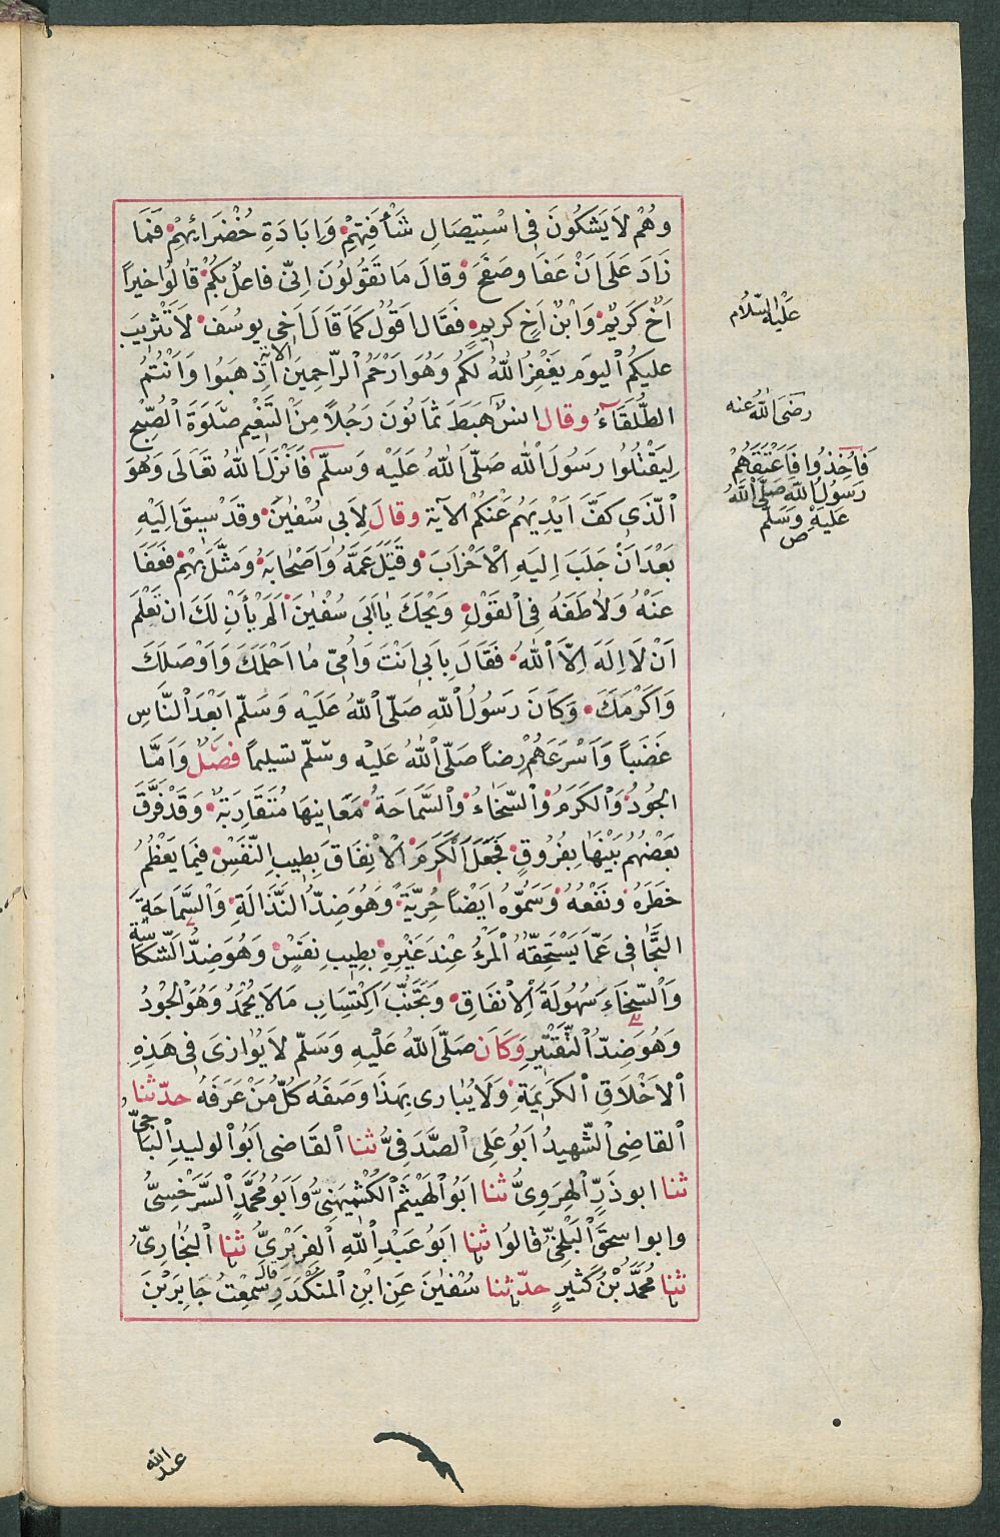 وَهُمْ لَا يَشُكُّونَ فِي اسْتِيصَالِ شَأْفَتِهِمْ وَاِبَادَةِ خَضْرَائِهِمْ فَمَا
زَادَ عَلَى اَنْ عَفَا وَصَفَحَ وَقَالَ مَا تَقُولُونَ اِنِّي فَاعِلٌ بِكُمْ قَالُوا خَيْرًا
اَخٌ كَرِيمٌ وَابْنُ اَخٍ كَرِيمٍ فَقَالَ اَقُولُ كَمَا قَالَ اَخِي يُوسُفَ لَا تَثْرِيبَ
عَلَيْهِ السَّلَام
عَلَيْكُمُ الْيَوْمَ يَغْفِرُ اللهُ لَكُمْ وَهُوَ اَرْحَمُ الرَّاحِمِينَ الاية اِذْهَبُوا وَاَنْتُمُ
الطُّلَقَاءُ وقال انس هَبَطَ ثَمَانُونَ رَجُلًا مِنَ التَّنْعِيمِ صَلَوةَ الصُّبْحِ
رَضِيَ اللهُ عنه
لِيَقْتُلُوا رَسُولَ اللهِ صَلَّى اللهُ عَلَيْهِ وَسَلَّمَ فَاَنْزَلَ اللهُ تَعَالَى وَهُوَ
فَاُخِذُوا فَاَعْتَقَهُمْ
رَسُولُ اللهِ صَلَّى اللهُ
عَلَيْهِ وَسَلَّمَ
ص
الَّذِي كَفَّ اَيْدِيَهُمْ عَنْكُمْ الاية وقال لِاَبِي سُفْيٰنَ وَقَدْ سِيقَ اِلَيْهِ
بَعْدَ اَنْ جَلَبَ اِلَيْهِ الْاَحْزَابَ وَقَتَلَ عَمَّهُ وَاَصْحَابَهُ وَمَثَّلَ بِهِمْ فَعَفَا
عَنْهُ وَلَاطَفَهُ فِي الْقَوْلِ وَيْحَكَ يَا اَبَى سُفْيٰنَ اَلَمْ يَأْنِ لَكَ اَنْ تَعْلَمَ
اَنْ لَا اِلَهَ اِلَّا اللهُ فَقَالَ بِاَبِي اَنْتَ وَاُمِّي مَا اَحْلَمَكَ وَاَوْصَلَكَ
وَاَكْرَمَكَ وَكَانَ رَسُولُ اللهِ صَلَّى اللهُ عَلَيْهِ وَسَلَّمَ اَبْعَدَ النَّاسِ
غَضَبًا وَاَسْرَعَهُمْ رِضًا صَلَّى اللهُ عَلَيْهِ وَسَلَّمَ تَسْلِيمًا فصل وَاَمَّا
الْجُودُ وَالْكَرَمُ وَالسَّخَاءُ وَالسَّمَاحَةُ مَعَانِيهَا مُتَقَارِبَةٌ وَقَدْ فَرَّقَ
بَعْضُهُمْ بَيْنَهَا بِفُرُوقٍ فَجَعَلَ الْكَرَمَ الْاِنْفَاقَ بِطِيبِ النَّفْسِ فِيمَا يَعْظُمُ
خَطَرُهُ وَنَفْعُهُ وَسَمَّوْهُ اَيْضًا حُرِّيَّةً وَهُوَ ضِدُّ النَّذَالَةِ وَالسَّمَاحَةِ
التَّجَافِي عَمَّا يَسْتَحِقُّهُ الْمَرْءُ عِنْدَ غَيْرِهِ بِطِيبِ نَفْسٍ وَهُوَ ضِدُّ الشَّكَاسَةِ
وَالسَّخَاءَ سُهُولَةَ الْاِنْفَاقِ وَتَجَنُّبَ اكْتِسَابِ مَا لَا يُحْمَدُ وَهُوَ الْجُودُ
وَهُوَ ضِدُّ التَّقْتِيرِ وَكَانَ صَلَّى اللهُ عَلَيْهِ وَسَلَّمَ لَا يُوَازَى فِي هَذِهِ
الْاَخْلَاقِ الْكَرِيمَةِ وَلَا يُبَارَى بِهَذَا وَصَفَهُ كُلُّ مَنْ عَرَفَهُ حدّثنا
الْقَاضِي الشَّهِيدُ اَبُو عَلِي الصَّدَفِيُّ ثنا الْقَاضِي اَبُو الْوَلِيدِ الْبَاجِيُّ
ثنا ابو ذَرٍّ الْهِرَوِيُّ ثنا ابَوُ الْهَيْثَمِ الْكُشْمِيهَنِيُّ وَاَبُو مُحَمَّدٍ السَّرَخْسِيُّ
وابو اسحق الْبَلْخِيُّ قَالُوا ثنا اَبُو عَبْدِ اللهِ الْفِرَبْرِيُّ ثنا الْبُخَارِيُّ
ثنا مُحَمَّدُ بْنُ كَثِيرٍ حدّثنا سُفْيٰنَ عَنِ ابْنِ الْمُنْكَدِرِ قال سَمِعْتُ جَابِرَ بْنَ
عبد الله